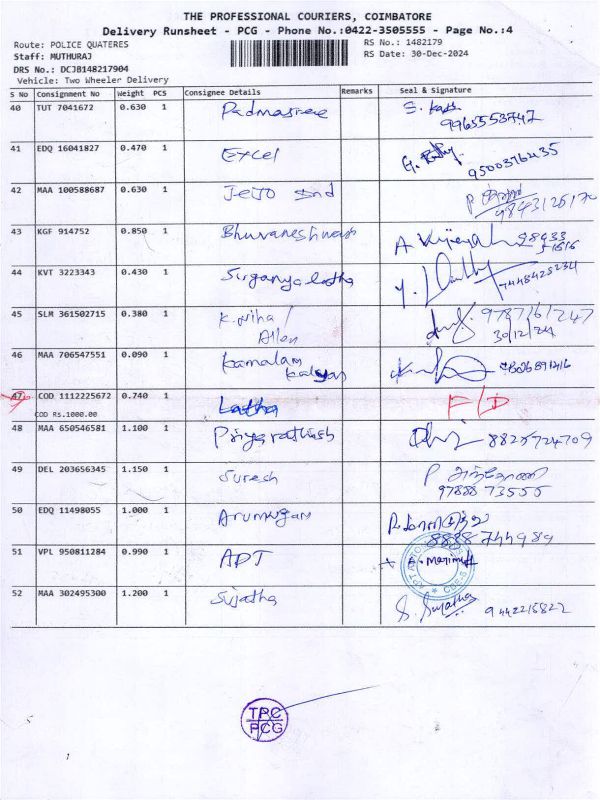 THE PROFESSIONAL COURIERS, COIMBATORE
Delivery Runsheet - PCG - Phone No.:0422-3505555 - Page No.:4
Route: POLICE QUATERES RS No.: 1482179
Staff: MUTHURAJ RS Date: 30-Dec-2024
DRS No.: DCJB148217904
Vehicle: Two Wheeler Delivery
S No Consignment No Weight PCS Consignee Details Remarks Seal & Signature
40 TUT 7041672 0.630 1 Padmasree
9965553747
41 EDQ 16041827 0.470 1 Excel
9500376435
42 MAA 100588687 0.630 1 JeJo Ind
9843126170
43 KGF 914752 0.850 1 Bhuvaneshwari 98433
51616
44 KVT 3223343 0.430 1 Suganya latha
7448425234
45 SLM 361502715 0.380 1 K. Niha / 9787161247
Allen 30/12/24
46 MAA 706547551 0.090 1 Kamalam
Kalyan
47 COD 1112225672 0.740 1 Latha F/D
COD Rs.1000.00
48 MAA 650546581 1.100 1 Priya rathish 8825724709
49 DEL 203656345 1.150 1 Suresh P அந்தோணி
97888 73555
50 EDQ 11498055 1.000 1 Arumugam
8888744989
51 VPL 950811284 0.990 1 APT
52 MAA 302495300 1.200 1 Sujatha S. Sujatha 9442215822
TPC
PCG